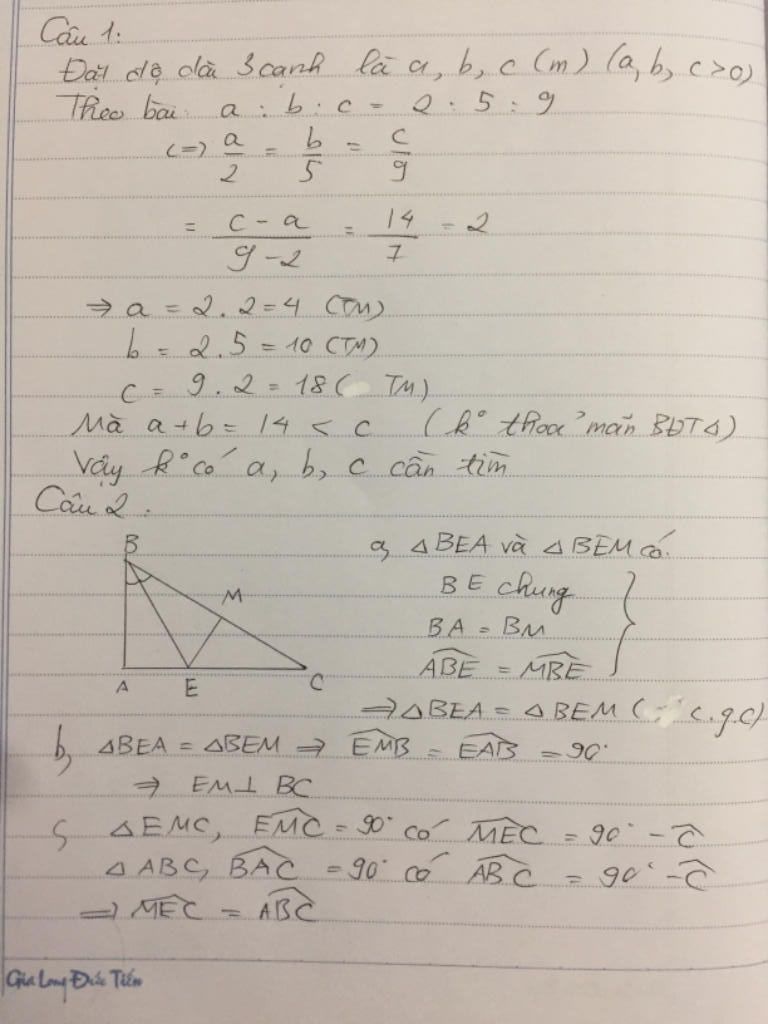 Câu 1:
Đặt độ dài 3 cạnh là a, b, c (m) (a, b, c > 0)
Theo bài: a : b : c = 2 : 5 : 9
<=> a/2 = b/5 = c/9
= (c - a)/(9 - 2) = 14/7 = 2
=> a = 2 . 2 = 4 (TM)
b = 2 . 5 = 10 (TM)
c = 9 . 2 = 18 (TM)
Mà a + b = 14 < c (k° thoả mãn BĐT Δ)
Vậy k° có a, b, c cần tìm
Câu 2.
B
M
A E C
a, ΔBEA và ΔBEM có
BE chung
BA = BM
ABE^ = MBE^
=> ΔBEA = ΔBEM (c.g.c)
b, ΔBEA = ΔBEM => EMB^ = EAB^ = 90°
=> EM ⊥ BC
c, ΔEMC, EMC^ = 90° có MEC^ = 90° - C^
ΔABC, BAC^ = 90° có ABC^ = 90° - C^
=> MEC^ = ABC^
Gia Long Đức Tiến